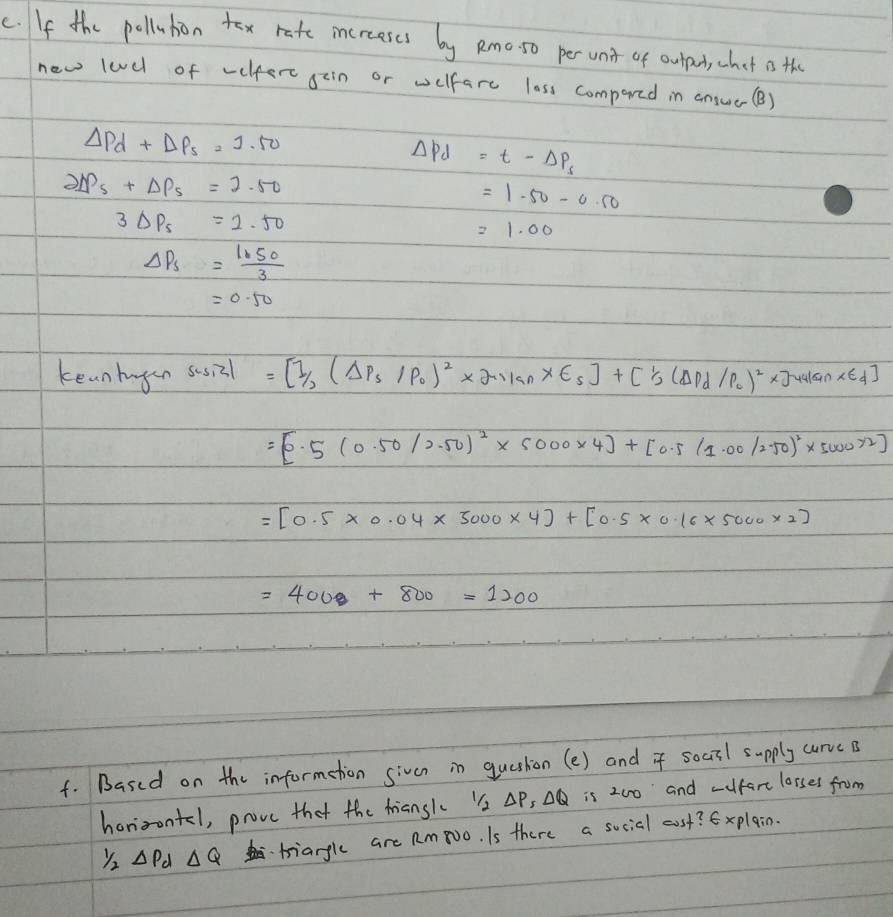 e. If the pollution tax rate increases by RM0.50 per unit of output, what is the
new level of welfare gain or welfare loss compared in answer (B)
ΔPd + ΔPs = 1.50
2ΔPs + ΔPs = 1.50
3 ΔPs = 1.50
ΔPs = 1.50/3
= 0.50
ΔPd = t - ΔPs
= 1.50 - 0.50
= 1.00
keuntungan sosial = [1/2 (ΔPs / P0)² × Jualan × Es] + [1/2 (ΔPd / P0)² × Jualan × Ed]
= [0.5 (0.50 / 2.50)² × 5000 × 4] + [0.5 (1.00 / 2.50)² × 5000 × 2]
= [0.5 × 0.04 × 5000 × 4] + [0.5 × 0.16 × 5000 × 2]
= 400 + 800 = 1200
f. Based on the information given in question (e) and if social supply curve is
horizontal, prove that the triangle 1/2 ΔPs ΔQ is 200 and welfare losses from
1/2 ΔPd ΔQ triangle are RM 800. Is there a social cost? Explain.